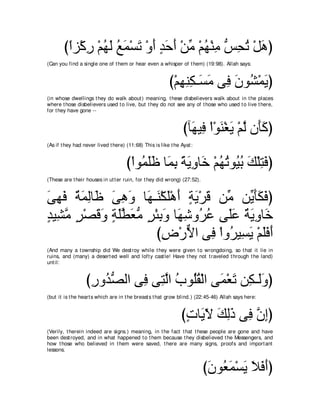 (هَلْ تُحِسُّ مِنْهُمْ مِّنْ أَحَدٍ أَوْ تَسْمَعُ لَهُمْ رِكْزاً)
(Can you find a single one of them or hear even a whisper of them) (19:98). Allah says:
(يَمْشُونَ فِى مَسَـكِنِهِمْ)
(in whose dwellings they do walk about) meaning, these disbelievers walk about in the places
where those disbelievers used to live, but they do not see any of those who used to live there,
for they have gone --
(كَأَن لَّمْ يَغْنَوْاْ فِيهَآ)
(As if they had never lived there) (11:68) This is like the Ayat:
(فَتِلْكَ بُيُوتُهُمْ خَاوِيَةً بِمَا ظَلَمُواْ)
(These are their houses in utter ruin, for they did wrong) (27:52).
(فَكَأَيِّن مِّن قَرْيَةٍ أَهْلَكْنَـهَا وَهِىَ ظَالِمَةٌ فَهِىَ
خَاوِيَةٌ عَلَى عُرُوشِهَا وَبِئْرٍ مُّعَطَّلَةٍ وَقَصْرٍ مَّشِيدٍ
أَفَلَمْ يَسِيرُواْ فِى الاٌّرْضِ)
(And many a township did We destroy while they were given to wrongdoing, so that it lie in
ruins, and (many) a deserted well and lofty castle! Have they not traveled through the land)
until:
(وَلَـكِن تَعْمَى الْقُلُوبُ الَّتِى فِى الصُّدُورِ)
(but it is the hearts which are in the breasts that grow blind.) (22:45-46) Allah says here:
(إِنَّ فِى ذَلِكَ لاّيَاتٍ)
(Verily, therein indeed are signs.) meaning, in the fact that these people are gone and have
been destroyed, and in what happened to them because they disbelieved the Messengers, and
how those who believed in them were saved, there are many signs, proofs and important
lessons.
(أَفَلاَ يَسْمَعُونَ)